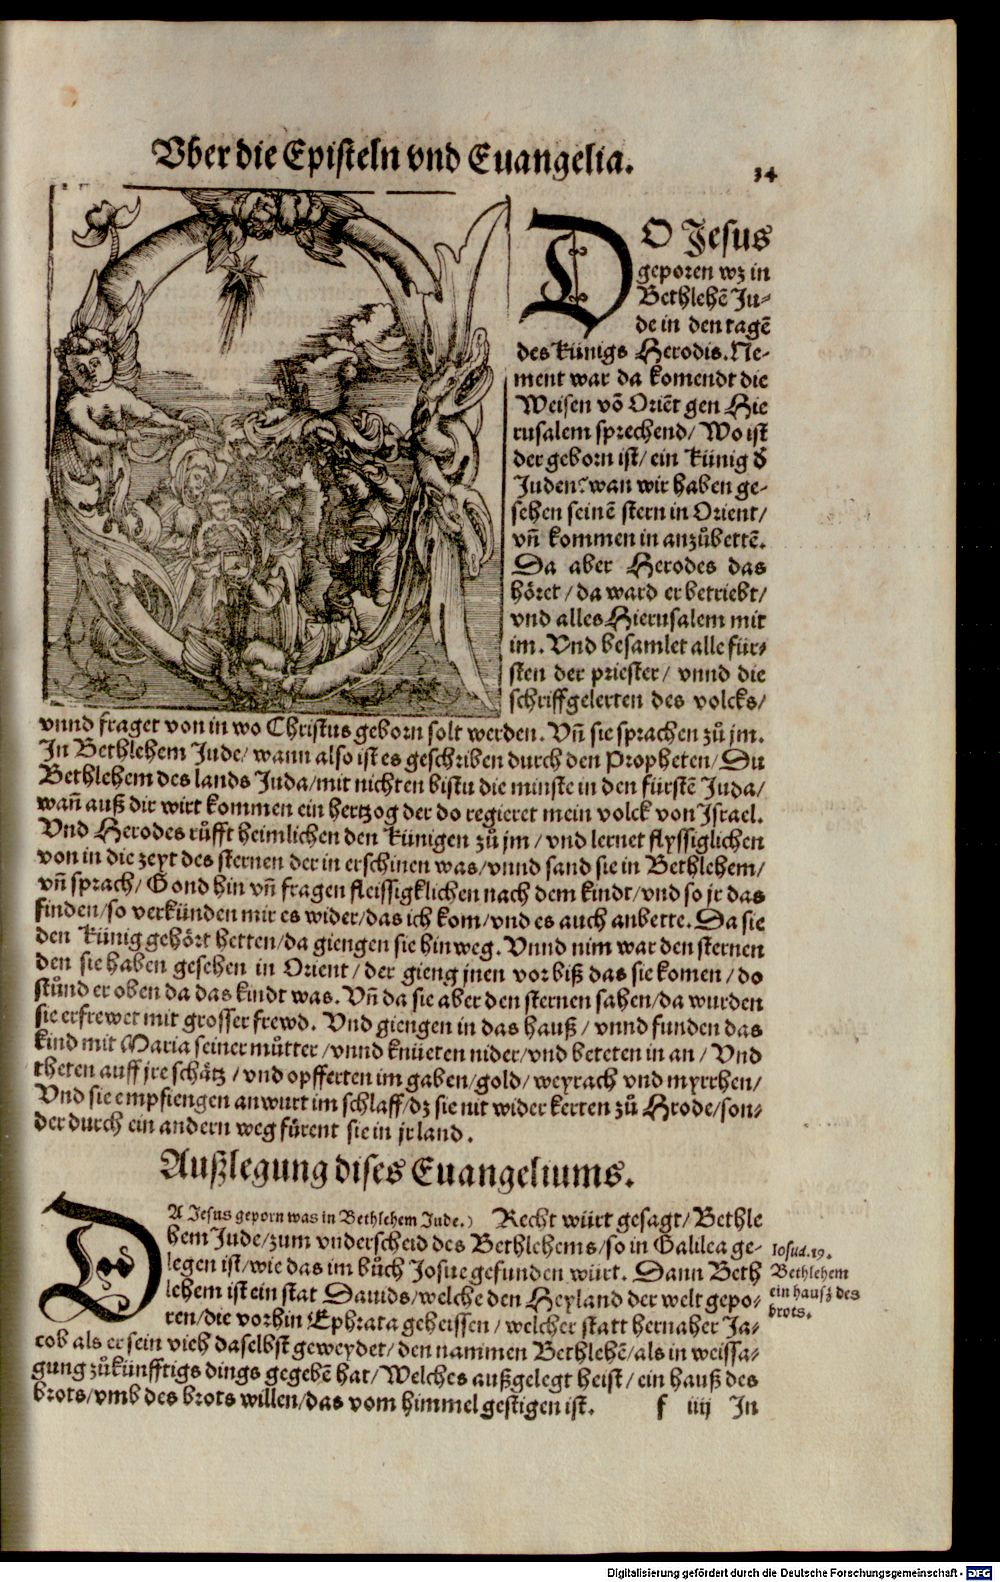 Vber die Episteln vnd Euangelia.
34
DO Jesus
geporen wz in
Bethlehē Ju-
de in den tagē
des künigs Herodis. Ne-
ment war da komendt die
Weisen vō Oriēt gen Hie
rusalem sprechend/ Wo ist
der geborn ist/ ein künig d̕
Juden? wan wir haben ge-
sehen seinē stern in Orient/
vn̄ kommen in anzůbettē.
Da aber Herodes das
höret/ da ward er betriebt/
vnd alles Hierusalem mit
im. Vnd besamlet alle für-
sten der priester/ vnnd die
schrifftgelerten des volcks/
vnnd fraget von in wo Christus geborn solt werden. Vn̄ sie sprachen zů jm.
In Bethlehem Jude/ wann also ist es geschriben durch den Propheten/ Du
Bethlehem des lands Juda/ mit nichten bistu die minste in den fürstē Juda/
wan̄ auß dir wirt kommen ein hertzog der do regieret mein volck von Israel.
Vnd Herodes růfft heimlichen den künigen zů jm/ vnd lernet flyssiglichen
von in die zeyt des sternen der in erschinen was/ vnnd sand sie in Bethlehem/
vn̄ sprach/ Gond hin vn̄ fragen fleissigklichen nach dem kindt/ vnd so jr das
finden/ so verkünden mir es wider/ das ich kom/ vnd es auch anbette. Da sie
den künig gehört hetten/ da giengen sie hinweg. Vnnd nim war den sternen
den sie haben gesehen in Orient/ der gieng jnen vor biß das sie komen/ do
stůnd er oben da das kindt was. Vn̄ da sie aber den sternen sahen/ da wurden
sie erfrewet mit grosser frewd. Vnd giengen in das hauß/ vnnd funden das
kind mit Maria seiner můtter/ vnnd knüeten nider/ vnd beteten in an/ Vnd
theten auff jre schätz/ vnd opfferten im gaben/ gold/ weyrach vnd myrrhen/
Vnd sie empfiengen anwurt im schlaff/ dz sie nit wider kerten zů Hrode/ son-
der durch ein andern weg fürent sie in jr land.
Außlegung dises Euangeliums.
DA Jesus geporn was in Bethlehem Jude.) Recht würt gesagt/ Bethle
hem Jude/ zum vnderscheid des Bethlehems/ so in Galilea ge-
legen ist/ wie das im bůch Josue gefunden würt. Dann Beth
lehem ist ein stat Dauids/ welche den Heyland der welt gepo-
ren/ die vorhin Ephrata geheissen/ welcher statt hernaher Ja-
cob als er sein vieh daselbst geweydet/ den nammen Bethlehē/ als in weissa-
gung zůkünfftigs dings gegebē hat/ Welches außgelegt heist/ ein hauß des
brots/ vmb des brots willen/ das vom himmel gestigen ist.
f iiij In
Iosud. 19.
Bethlehem
ein hausz des
brots.
Digitalisierung gefördert durch die Deutsche Forschungsgemeinschaft - DFG